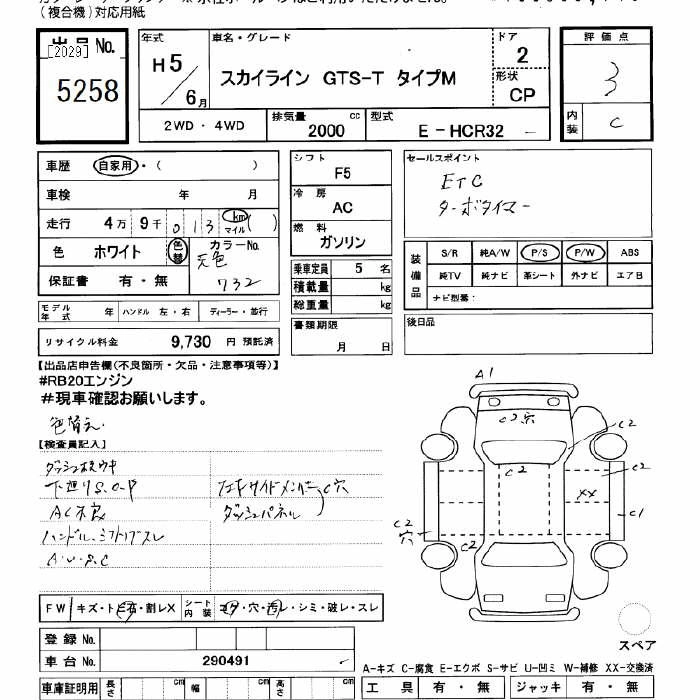 (複合機)対応用紙
出品 No.
[2029]
5258
年式
H5/6月
車名・グレード
スカイライン GTS-T タイプM
ドア
2
形状
CP
評価点
3
内装
C
2WD・4WD
排気量 2000 cc
型式 E-HCR32
車歴 自家用・( )
車検 年 月
走行 4万 9千 013 km マイル ( )
色 ホワイト 色替 カラーNo.
元色 732
保証書 有・無
モデル年式 年 ハンドル 左・右 ディーラー・並行
リサイクル料金 9,730 円 預託済
シフト F5
冷房 AC
燃料 ガソリン
乗車定員 5 名
積載量 kg
総重量 kg
書類期限
月 日
セールスポイント
ETC
ターボタイマー
装備品
S/R 純A/W P/S P/W ABS
純TV 純ナビ 革シート 外ナビ エアB
ナビ型番:
後日品
【出品店申告欄(不良箇所・欠品・注意事項等)】
#RB20エンジン
#現車確認お願いします。
色替え.
【検査員記入】
ダッシュボウキ
下廻りS.O-P
AC不良
ハンドル、シフトノブスレ
A・U・S・C
サイドメンバーC穴
ダッシュパネル
A1
C2穴
C2
C2
C2
XX
C1
C2
穴
C2
FW キズ・トビ石・割レX
シート内装 コゲ・穴・汚レ・シミ・破レ・スレ
登録 No.
車台 No. 290491
スペア
A-キズ C-腐食 E-エクボ S-サビ U-凹ミ W-補修 XX-交換済
車庫証明用 長さ cm 幅 cm 高さ cm
工具 有・無 ジャッキ 有・無